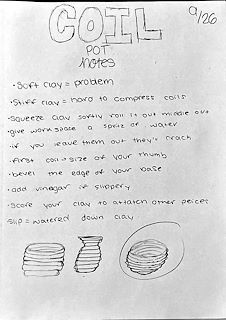 COIL
9/26
POT
Notes
• Soft clay = problem
• Stiff clay = hard to compress coils
• Squeeze clay softly roll it out middle out
• give work space a spritz of water
• if you leave them out they'll crack
• first coil → size of your thumb
• bevel the edge of your base
• add vinegar if slippery
• Score your clay to attatch other peices
Slip = watered down clay